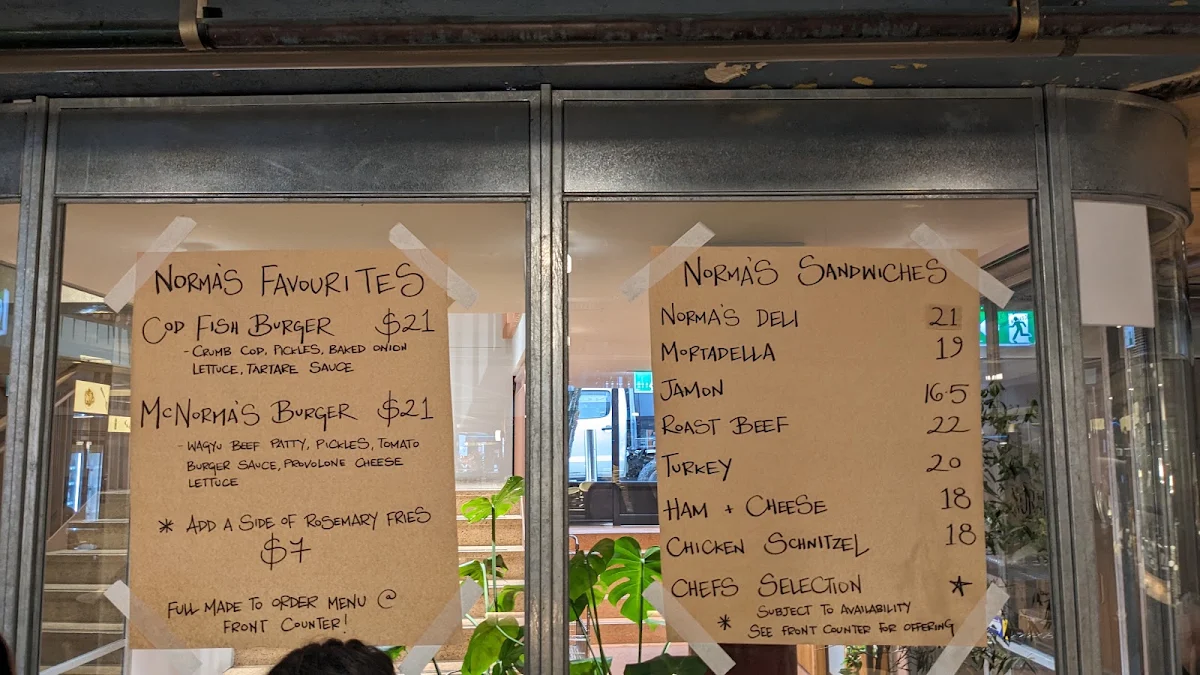 NORMA'S FAVOURITES
COD FISH BURGER $21
- CRUMB COD, PICKLES, BAKED ONION
LETTUCE, TARTARE SAUCE
MCNORMA'S BURGER $21
- WAGYU BEEF PATTY, PICKLES, TOMATO
BURGER SAUCE, PROVOLONE CHEESE
LETTUCE
* ADD A SIDE OF ROSEMARY FRIES
$7
FULL MADE TO ORDER MENU @
FRONT COUNTER!
NORMA'S SANDWICHES
NORMA'S DELI 21
MORTADELLA 19
JAMON 16.5
ROAST BEEF 22
TURKEY 20
HAM + CHEESE 18
CHICKEN SCHNITZEL 18
CHEFS SELECTION *
* SUBJECT TO AVAILABILITY
SEE FRONT COUNTER FOR OFFERING